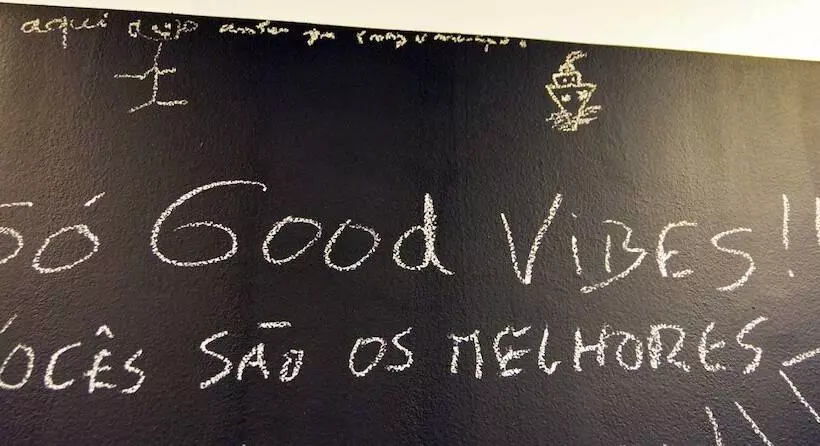 aqui
Só Good ViBES!!
VOCÊS SÃO OS MELHORES